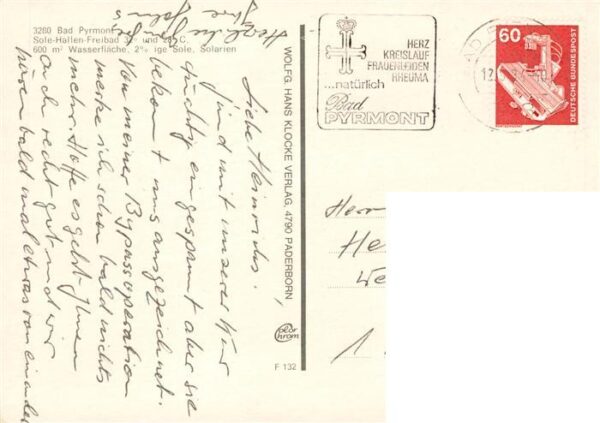 3280 Bad Pyrmont
Sole-Hallen-Freibad 32° und 28° C.
600 m² Wasserfläche, 2% ige Sole, Solarien
Liebe Heinrichs!
sind mit unserer Kur
tüchtig eingespannt aber sie
bekommt uns ausgezeichnet.
Von meiner Bypassoperation
merke ich schon bald nichts
mehr. Hoffe es geht Ihnen
auch recht gut und wir
hören bald mal etwas voneinander
Herzliche Grüße
Ihre
WOLFG. HANS KLOCKE VERLAG, 4790 PADERBORN
Color
chrom
F 132
HERZ
KREISLAUF
FRAUENLEIDEN
RHEUMA
...natürlich
Bad
PYRMONT
BAD
12.
60
DEUTSCHE BUNDESPOST
Herr
He
We
1